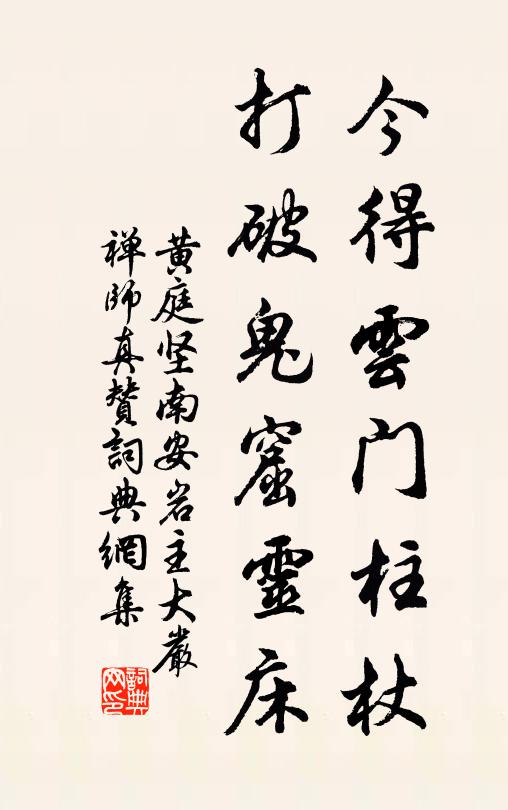 今得雲门柱杖
打破鬼窟靈床
黄庭坚南安岩主大嚴
禅师真赞詞典網集
詞典网印